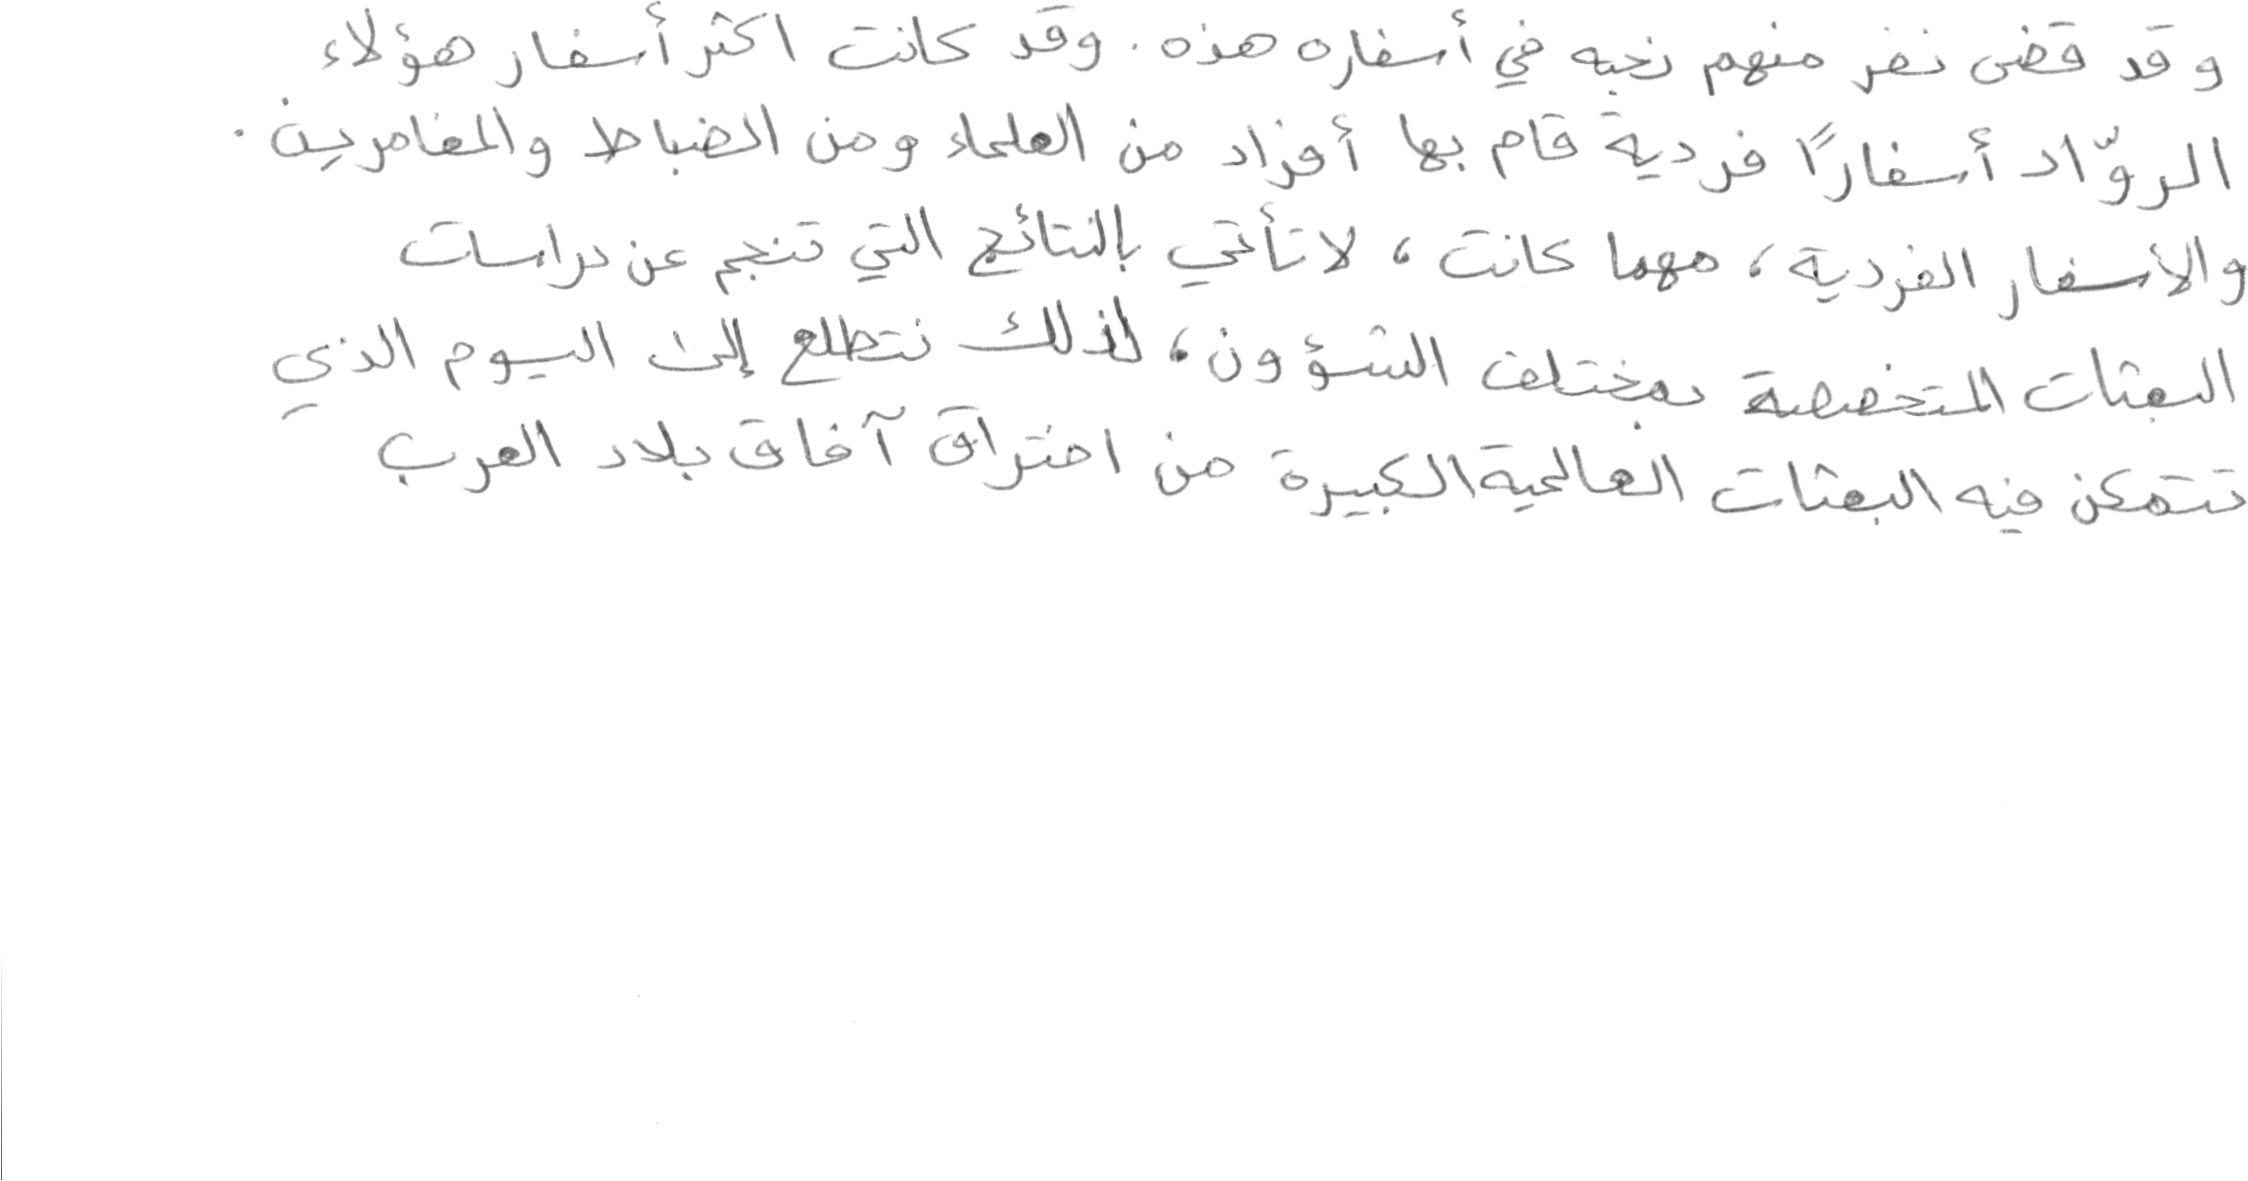 وقد قضى نفر منهم نحبه في أسفاره هذه. وقد كانت اكثر أسفار هؤلاء
الروّاد أسفارًا فردية قام بها أفراد من العلماء ومن الضباط والمغامرين.
والأسفار الفردية، مهما كانت، لا تأتي بالنتائج التي تنجم عن دراسات
البعثات المتخصصة بمختلف الشؤون، لذلك نتطلع إلى اليوم الذي
تتمكن فيه البعثات العالمية الكبيرة من اختراق آفاق بلاد العرب